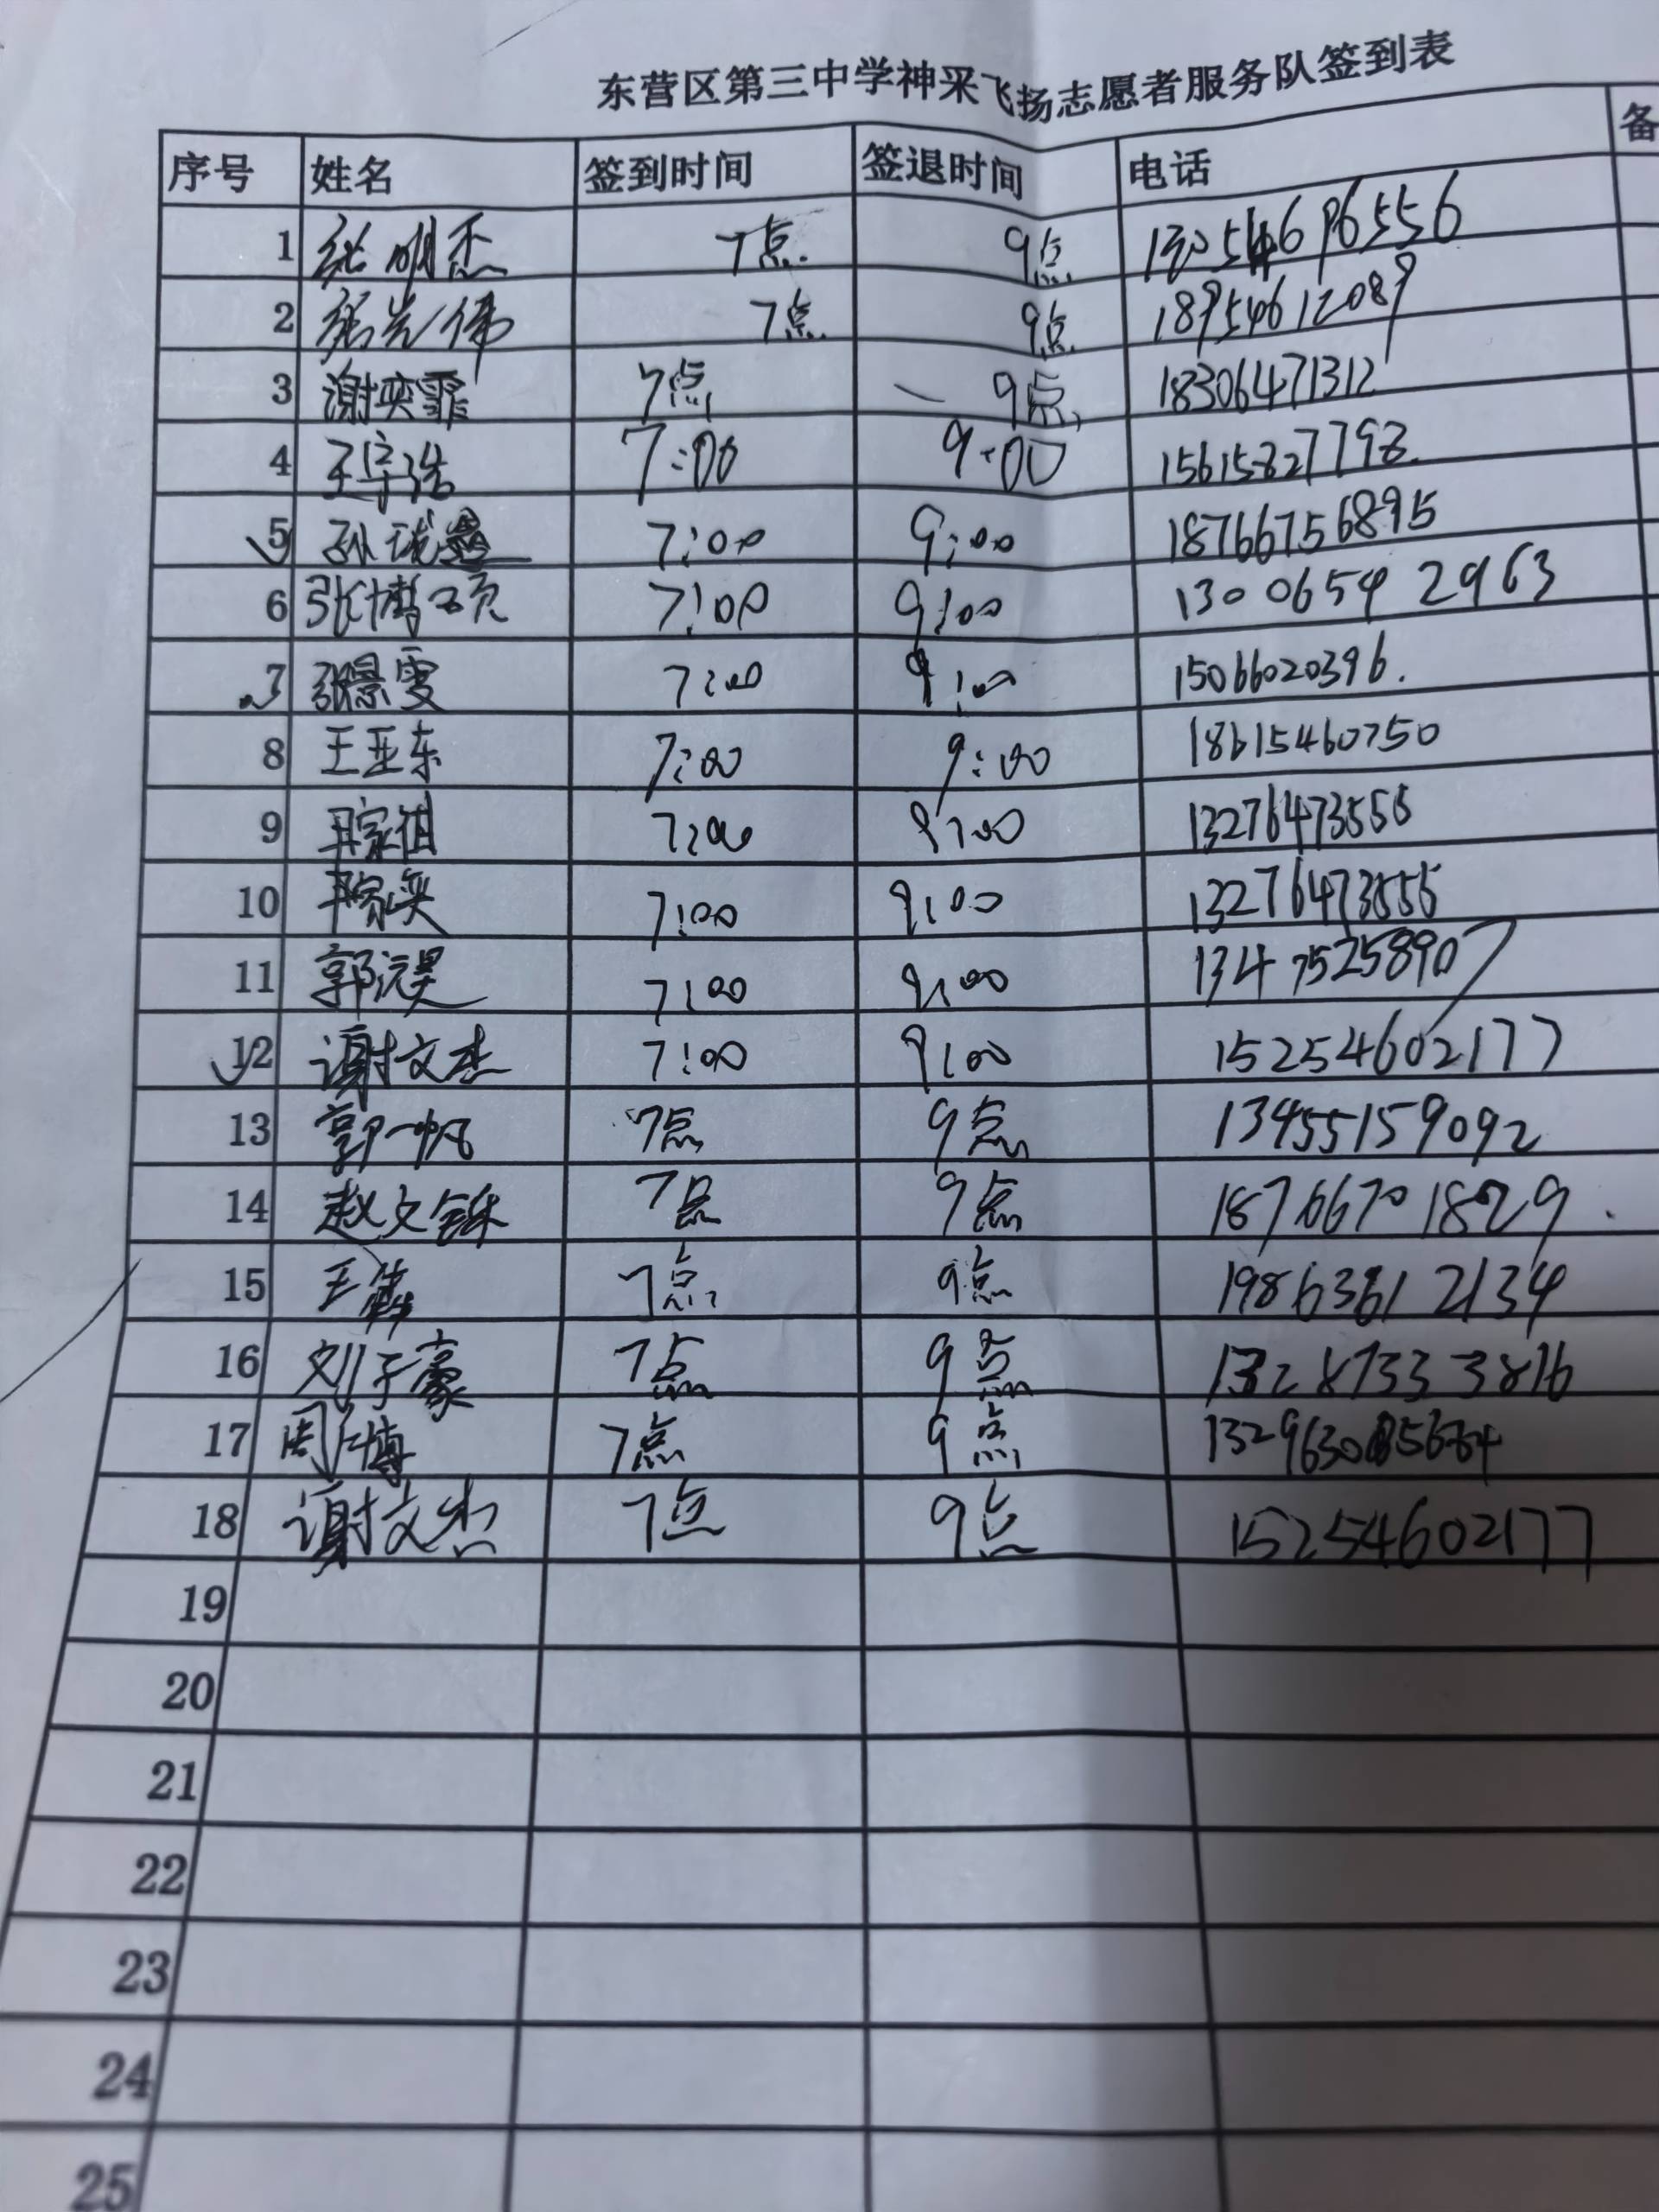 东营区第三中学神采飞扬志愿者服务队签到表
序号 姓名 签到时间 签退时间 电话 备
1 张明杰 7点 9点
2 7点 9点 18954612089
3 谢奕霏 7点 9点 18306471312
4 王宇浩 7:00 9:00 15615827798
5 7:00 9:00 18766756895
6 张博硕 7:00 9:00 13006542963
7 张景雯 7:00 9:00 15066020396.
8 王亚东 7:00 9:00 18615460750
9 7:00 9:00 13276473555
10 7:00 9:00 13276473555
11 郭沅昊 7:00 9:00 13475258907
12 谢文杰 7:00 9:00 15254602177
13 郭一帆 7点 9点 13455159092
14 赵文铄 7点 9点 18766701829
15 7点 9点 19863612134
16 刘子豪 7点 9点 13287333816
17 7点 9点
18 谢文杰 7点 9点 15254602177
19
20
21
22
23
24
25